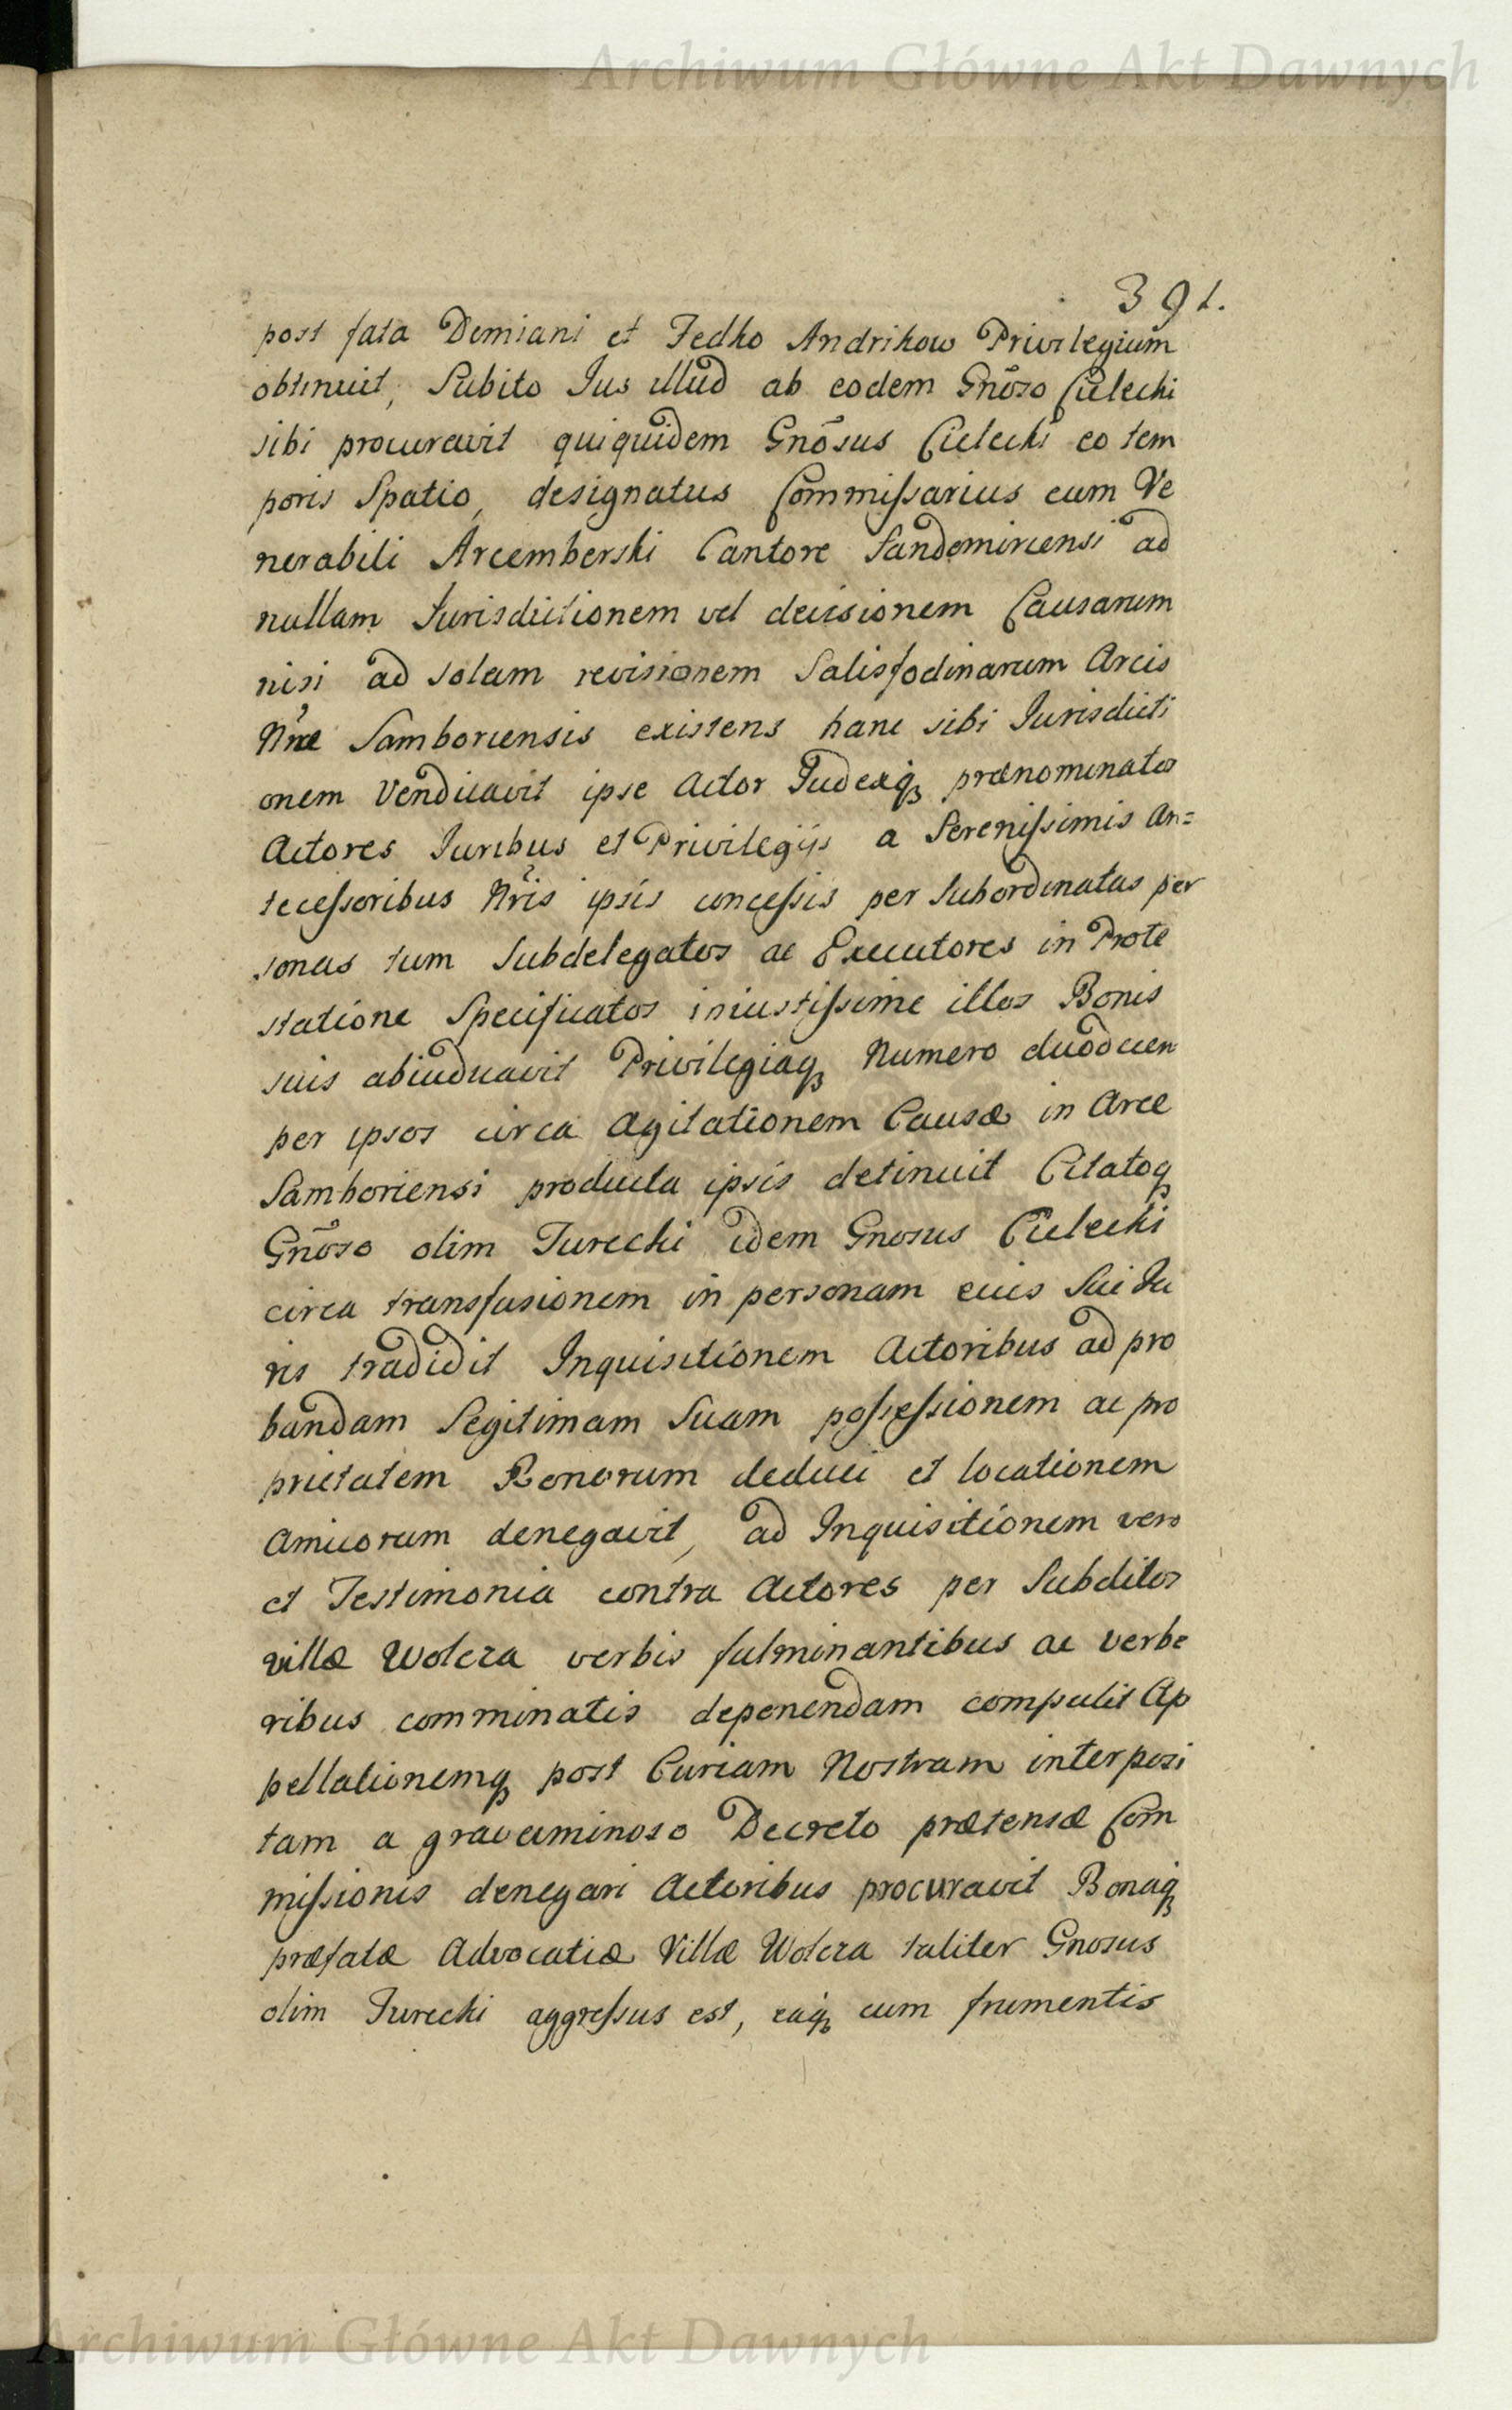 Archiwum Główne Akt Dawnych
391.
post fata Demiani et Fedko Andrikow Privilegium
obtinuit, Subito Jus illud ab eodem Gnõso Cielecki
sibi procuravit quiquidem Gnõsus Cielecki eo tem
poris Spatio, designatus Commissarius cum Ve
nerabili Arcemberski Cantore Sandomiriensi ad
nullam Jurisdictionem vel decisionem Causarum
nisi ad solam revisionem Salisfodinarum Arcis
Nrae Samboriensis existens hanc sibi Jurisdicti
onem Vendicavit ipse Actor Judexq praenominatos
Actores Juribus et Privilegijs a Serenissimis An=
tecessoribus Nris ipsis concessis per Subordinatas per
sonas tum Subdelegatos ac Executores in Prote
statione Specificatos iniustissime illos Bonis
suis abiudicavit Privilegiaq Numero duodecem
per ipsos circa Agitationem Causae in Arce
Samboriensi producta ipsis detinuit Citatoq
Gnõso olim Turecki idem Gnosus Cielecki
circa transfusionem in personam eius Sui Ju
ris tradidit Inquisitionem Actoribus ad pro
bandam Legitimam Suam possessionem ac pro
prietatem Bonorum deduci et locationem
Amicorum denegavit, ad Inquisitionem vero
et Testimonia contra Actores per Subditos
villae Wolcza verbis fulminantibus ac verbe
ribus comminatis deponendam compulit Ap
pellationemq post Curiam Nostram interposi
tam a gravaminoso Decreto praetensae Com
missionis denegari Actoribus procuravit Bonaq
praefatae Advocatiae Villae Wolcza taliter Gnosus
olim Turecki aggressus est, eaq cum frumentis
Archiwum Główne Akt Dawnych